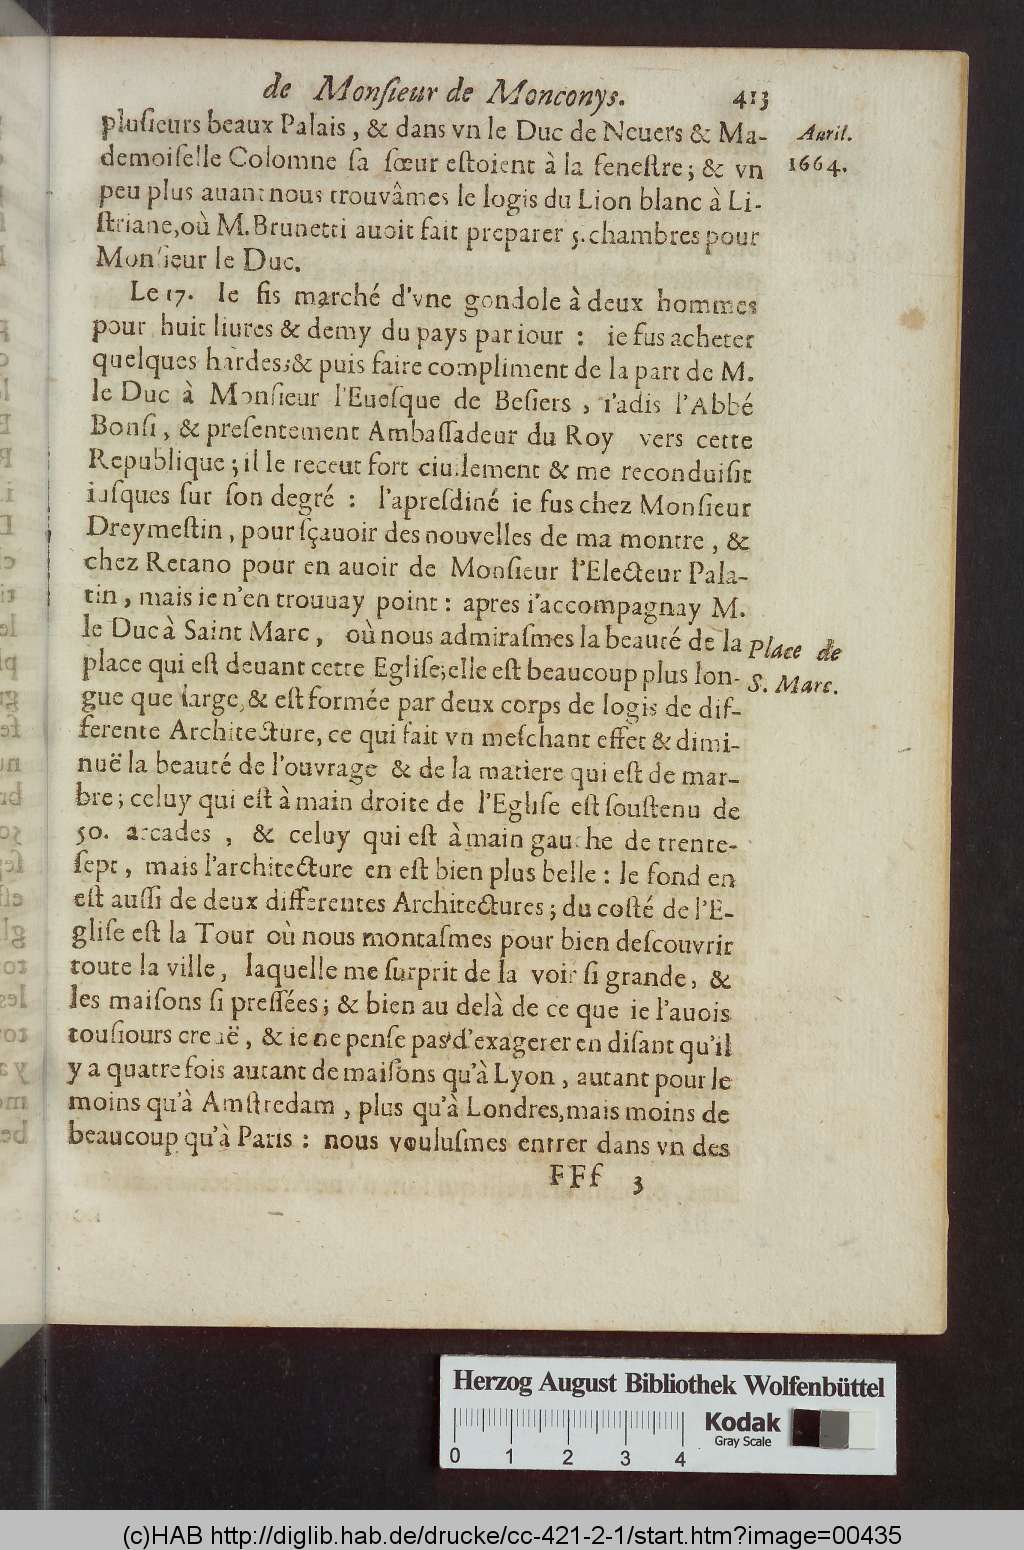 de Monſieur de Monconys. 413
pluſieurs beaux Palais, & dans vn le Duc de Neuers & Ma-
Auril.
demoiſelle Colomne ſa ſœur eſtoient à la feneſtre; & vn
1664.
peu plus auant nous trouvâmes le logis du Lion blanc à Li-
ſtriane, où M. Brunetti auoit fait preparer 5. chambres pour
Monſieur le Duc.
Le 17. Ie fis marché d'vne gondole à deux hommes
pour huit liures & demy du pays par iour : ie fus acheter
quelques hardes; & puis faire compliment de la part de M.
le Duc à Monſieur l'Eueſque de Beſiers, i'adis l'Abbé
Bonſi, & preſentement Ambaſſadeur du Roy vers cette
Republique; il le receut fort ciuilement & me reconduiſit
iuſques ſur ſon degré : l'apreſdiné ie fus chez Monſieur
Dreymeſtin, pour ſçauoir des nouvelles de ma montre, &
chez Retano pour en auoir de Monſieur l'Electeur Pala-
tin, mais ie n'en trouuay point : apres i'accompagnay M.
le Duc à Saint Marc, où nous admiraſmes la beauté de la
Place de
place qui eſt deuant cette Egliſe; elle eſt beaucoup plus lon-
S. Marc.
gue que large, & eſt formée par deux corps de logis de dif-
ferente Architecture, ce qui fait vn meſchant effet & dimi-
nuë la beauté de l'ouvrage & de la matiere qui eſt de mar-
bre; celuy qui eſt à main droite de l'Egliſe eſt ſouſtenu de
50. arcades, & celuy qui eſt à main gauche de trente-
ſept, mais l'architecture en eſt bien plus belle : le fond en
eſt auſſi de deux differentes Architectures; du coſté de l'E-
gliſe eſt la Tour où nous montaſmes pour bien deſcouvrir
toute la ville, laquelle me ſurprit de la voir ſi grande, &
les maiſons ſi preſſées; & bien au delà de ce que ie l'auois
touſiours creuë, & ie ne penſe pas d'exagerer en diſant qu'il
y a quatre fois autant de maiſons qu'à Lyon, autant pour le
moins qu'à Amſtredam, plus qu'à Londres, mais moins de
beaucoup qu'à Paris : nous vouluſmes entrer dans vn des
FFf 3
Herzog August Bibliothek Wolfenbüttel
Kodak
Gray Scale
0 1 2 3 4
(c)HAB http://diglib.hab.de/drucke/cc-421-2-1/start.htm?image=00435